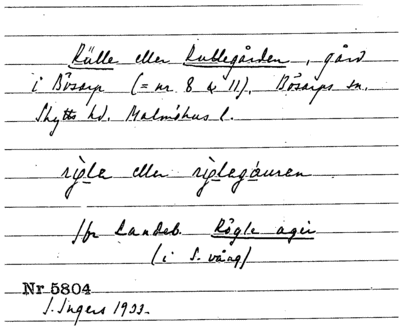 Rülle eller Rullegården, gård
i Bösarp (= nr 8 & 11). Bösarps sn.
Skytts hd. Malmöhus l.
rigla eller riglagáuren
Jfr Landeb. Rögle ager
(i S. vång)
Nr 5804
I. Ingers 1933.